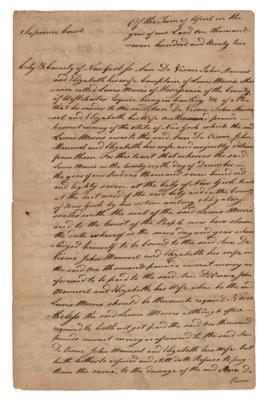 Of the Term of April in the
Supreme Court year of our Lord one thousand
seven hundred and ninety two
City & County of New York ss. Ann De Visme John Maunsel
and Elizabeth his wife Complain of Lewis Morris
called Lewis Morris of Morrisania of the County
of Westchester Esquire being in custody &c of a Plea
that he render to the said Ann De Visme John Maunsel
and Elizabeth his Wife one thousand pounds
current money of the State of New York which the said
Lewis Morris owes to the said Ann De Visme John
Maunsel and Elizabeth his wife, and unjustly detains
from them. For this to wit that whereas the said
Lewis Morris on the day of December in
the year of our Lord one thousand seven hundred
and eighty seven at the City of New York
at the ward of the said City and in the County
of New York by his certain writing obligatory
sealed with the seal of the said Lewis Morris
and to the Court of the People now here shewn
the date whereof is the same day and year acknow
ledged himself to be bound to the said Ann De
Visme John Maunsel and Elizabeth his wife in
the said one thousand pounds current money
aforesaid to be paid to the said Ann De Visme John
Maunsel and Elizabeth his Wife when he the said
Lewis Morris should be thereunto required. Never
theless the said Lewis Morris although often
required &c hath not yet paid the said one thousand
pounds current money aforesaid to the said Ann
De Visme John Maunsel and Elizabeth his Wife but
hath hitherto refused and still doth Refuse to pay
them the same, to the damage of the said Ann De
Visme